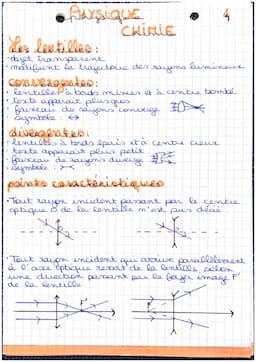 PHYSIQUE
4
CHIMIE
Les lentilles :
• objet transparent
• modifient la trajectoire des rayons lumineux
convergentes :
• lentilles à bords minces et à centre bombé
• texte apparait plus gros
• faisceau de rayons converge
• symbole : ↔
divergentes :
• lentilles à bords épais et à centre creux
• texte apparait plus petit
• faisceau de rayons diverge
• symbole :
points caractéristiques
• Tout rayon incident passant par le centre
optique O de la lentille n'est pas dévié
• Tout rayon incident qui arrive parallèlement
à l'axe optique ressort de la lentille selon
une direction passant par le foyer image F'
de la lentille
F'
F'